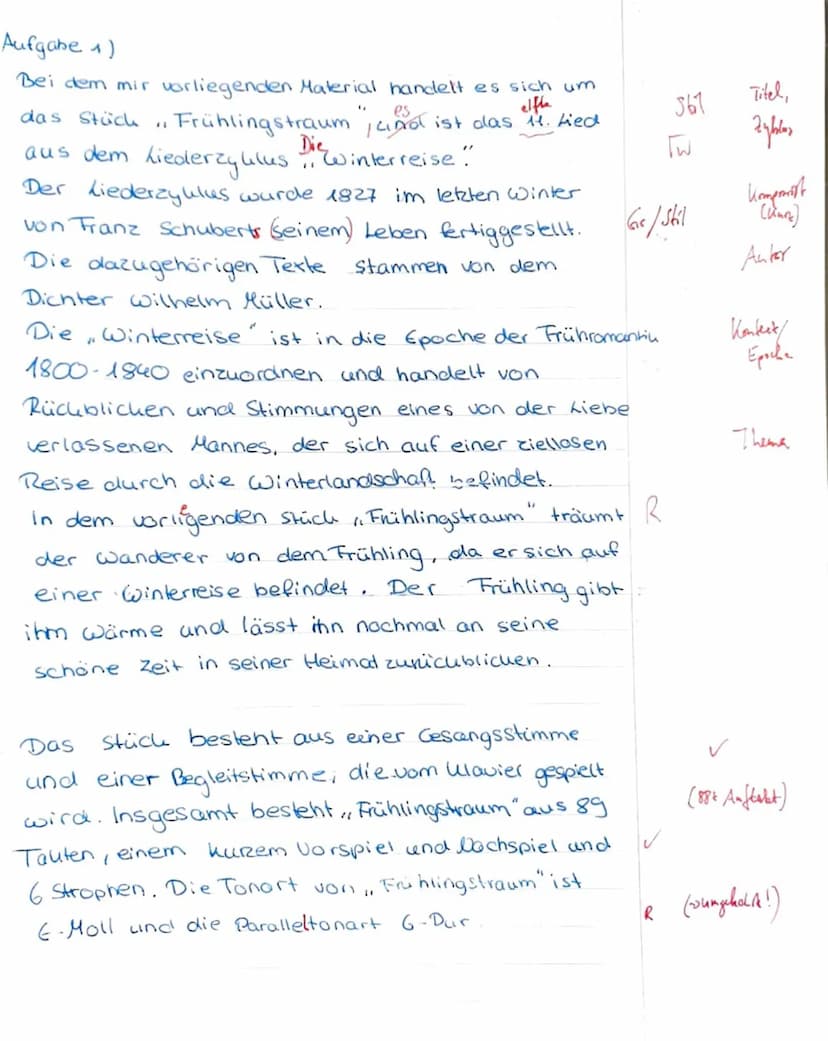 Aufgabe 1)
Bei dem mir vorliegenden Material handelt es sich um
das Stück „Frühlingstraum", und es ist das 11. elfte Lied
aus dem Liederzyklus Die „Winterreise".
Der Liederzyklus wurde 1827 im letzten Winter
von Franz Schuberts (seinem) Leben fertiggestellt.
Die dazugehörigen Texte stammen von dem
Dichter Wilhelm Müller.
Die „Winterreise" ist in die Epoche der Frühromantik
1800-1840 einzuordnen und handelt von
Rückblicken und Stimmungen eines von der Liebe
verlassenen Mannes, der sich auf einer ziellosen
Reise durch die Winterlandschaft befindet.
In dem vorligenden e Stück „Frühlingstraum" träumt
der Wanderer von dem Frühling, da er sich auf
einer Winterreise befindet. Der Frühling gibt
ihm Wärme und lässt ihn nochmal an seine
schöne Zeit in seiner Heimat zurückblicken.
Das Stück besteht aus einer Gesangsstimme
und einer Begleitstimme, die vom Klavier gespielt
wird. Insgesamt besteht „Frühlingstraum" aus 89
Takten, einem kurzem Vorspiel und Nachspiel und
6 Strophen. Die Tonart von „Frühlingstraum" ist
E-Moll und die Paralleltonart G-Dur.
Stil
Titel,
Zyklus
Komponist
(kurz)
Autor
Kontext/
Epoche
Thema
R
✓
(88+ Auftakt)
✓
R (umgekehrt!)